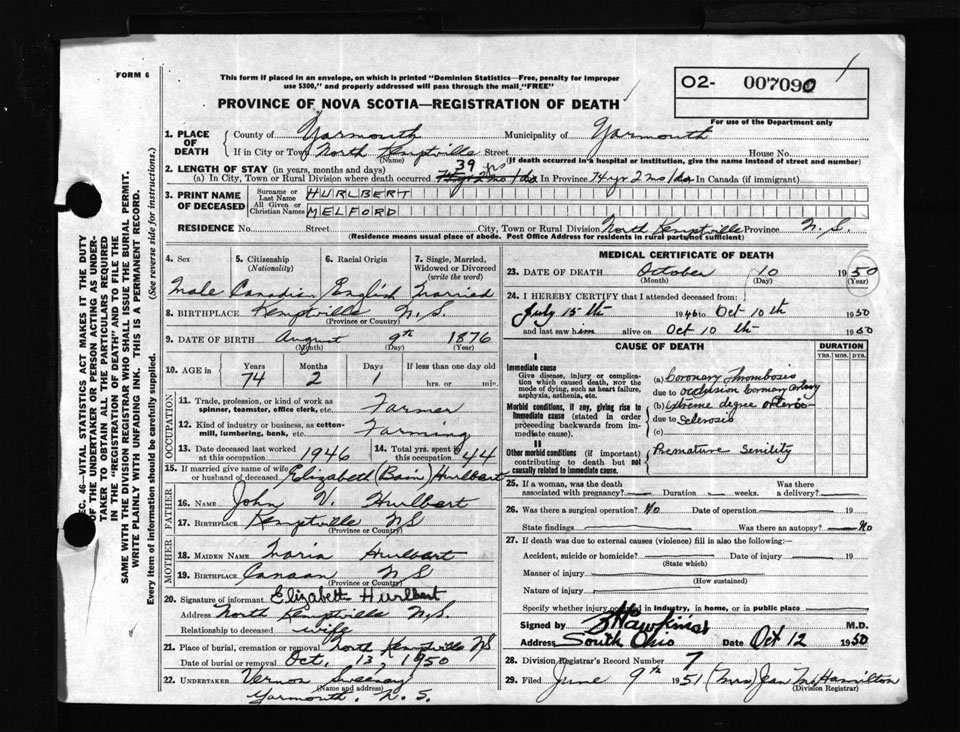 FORM 6
This form if placed in an envelope, on which is printed "Dominion Statistics—Free, penalty for improper
use $300," and properly addressed will pass through the mail "FREE"
O2- 007090
For use of the Department only
PROVINCE OF NOVA SCOTIA—REGISTRATION OF DEATH
1. PLACE OF DEATH
County of Yarmouth Municipality of Yarmouth
If in City or Town North Kemptville Street House No.
(Name) (If death occurred in hospital or institution, give the name instead of street and number)
2. LENGTH OF STAY (in years, months and days) 39 yrs
(a) In City, Town or Rural Division where death occurred In Province 74 yr 2 mo 1 da In Canada (if immigrant)
3. PRINT NAME OF DECEASED
Surname or Last Name HURLBERT
All Given or Christian Names MELFORD
RESIDENCE No. Street City, Town or Rural Division North Kemptville Province N.S.
(Residence means usual place of abode. Post Office Address for residents in rural parts not sufficient)
4. Sex 5. Citizenship (Nationality) 6. Racial Origin 7. Single, Married, Widowed or Divorced (write the word)
Male Canadian English Married
8. BIRTHPLACE Kemptville N.S.
(Province or Country)
9. DATE OF BIRTH August 9th 1876
(Month) (Day) (Year)
10. AGE in Years Months Days If less than one day old
74 2 1 hrs. or min.
OCCUPATION
11. Trade, profession, or kind of work as spinner, teamster, office clerk, etc. Farmer
12. Kind of industry or business, as cotton-mill, lumbering, bank, etc. Farming
13. Date deceased last worked at this occupation 1946 14. Total yrs. spent in this occupation 44
15. If married give name of wife or husband of deceased Elizabeth (Bain) Hurlbert
FATHER
16. NAME John V. Hurlbert
17. BIRTHPLACE Kemptville NS
(Province or Country)
MOTHER
18. MAIDEN NAME Maria Hurlbert
19. BIRTHPLACE Canaan N S
(Province or Country)
20. Signature of informant Elizabeth Hurlbert
Address North Kemptville N.S.
Relationship to deceased wife
21. Place of burial, cremation or removal North Kemptville NS
Date of burial or removal Oct, 13, 1950
22. UNDERTAKER Vernon Sweeney
(Name and address)
Yarmouth, N. S.
MEDICAL CERTIFICATE OF DEATH
23. DATE OF DEATH October 10 1950
(Month) (Day) (Year)
24. I HEREBY CERTIFY that I attended deceased from:
July 15th 1946 to Oct 10th 1950
and last saw him alive on Oct 10th 1950
CAUSE OF DEATH DURATION
YRS. MOS. DYS.
I
Immediate cause
Give disease, injury or complication which caused death, not the mode of dying, such as heart failure, asphyxia, asthenia, etc.
(a) Coronary Thrombosis
due to occlusion coronary artery
Morbid conditions, if any, giving rise to immediate cause (stated in order proceeding backwards from immediate cause).
(b) Extreme degree arterio
due to sclerosis
(c)
II
Other morbid conditions (if important) contributing to death but not causally related to immediate cause.
Premature Senility
25. If a woman, was the death associated with pregnancy? Duration weeks. Was there a delivery?
26. Was there a surgical operation? No Date of operation 19
State findings Was there an autopsy? No
27. If death was due to external causes (violence) fill in also the following:
Accident, suicide or homicide? Date of injury 19
(State which)
Manner of injury
(How sustained)
Nature of injury
Specify whether injury occurred in industry, in home, or in public place
Signed by Hawkins M.D.
Address South Ohio Date Oct 12 1950
28. Division Registrar's Record Number 7
29. Filed June 9th 1951 (Mrs) Jean M. Hamilton
(Division Registrar)
SEC. 46—VITAL STATISTICS ACT MAKES IT THE DUTY
OF THE UNDERTAKER OR PERSON ACTING AS UNDER-
TAKER TO OBTAIN ALL THE PARTICULARS REQUIRED
IN THE "REGISTRATION OF DEATH" AND TO FILE THE
SAME WITH THE DIVISION REGISTRAR WHO SHALL ISSUE THE BURIAL PERMIT.
WRITE PLAINLY WITH UNFADING INK. THIS IS A PERMANENT RECORD.
Every item of information should be carefully supplied. (See reverse side for instructions.)